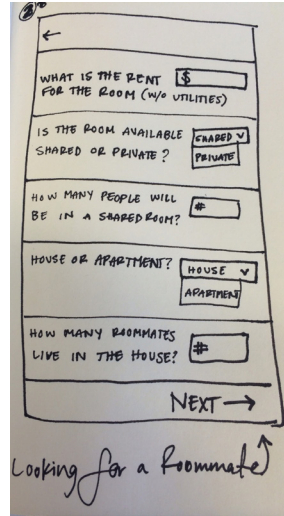 ←
WHAT IS THE RENT $
FOR THE ROOM (W/O UTILITIES)
IS THE ROOM AVAILABLE SHARED V
SHARED OR PRIVATE? PRIVATE
HOW MANY PEOPLE WILL #
BE IN A SHARED ROOM?
HOUSE OR APARTMENT? HOUSE V
APARTMENT
HOW MANY ROOMMATES
LIVE IN THE HOUSE? #
NEXT →
Looking for a Roommate